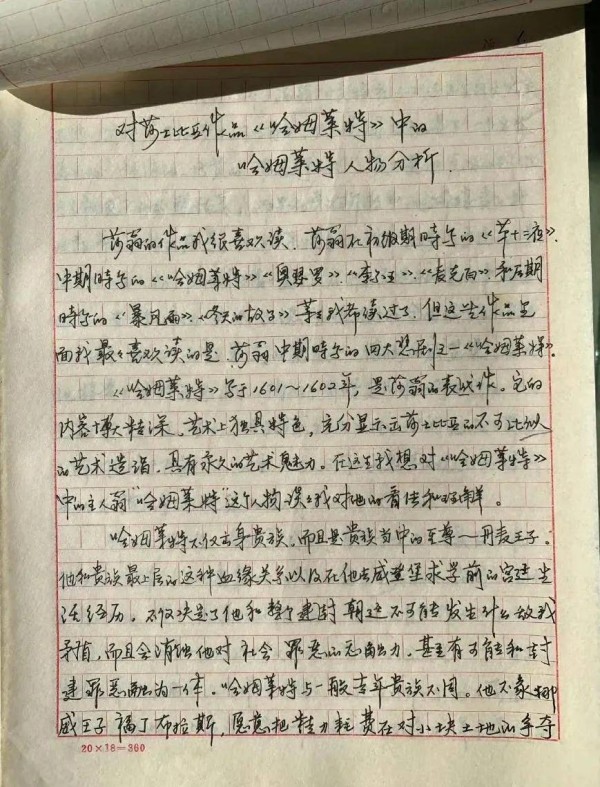 对莎士比亚作品《哈姆莱特》中的
哈姆莱特人物分析.
莎翁的作品我很喜欢读. 莎翁在初级期時写的《第十二夜》.
中期時写的《哈姆莱特》《奥瑟罗》.《李尔王》.《麦克白》和后期
時写的《暴风雨》.《冬天的故事》等等我都读过了. 但这些作品里
面我最最喜欢读的是. 莎翁中期時写的四大悲剧之一《哈姆莱特》.
《哈姆莱特》写于1601～1602年, 是莎翁的代表作。它的
内容博大精深. 艺术上独具特色, 充分显示出莎士比亚的不可比拟
的艺术造诣, 具有永久的艺术魅力。在这里我想对《哈姆莱特》
中的主人翁"哈姆莱特"这个人物谈谈我对他的看法和理解。
哈姆莱特不仅出身贵族. 而且是贵族当中的至尊——丹麦王子。
他和贵族最上层的这种血缘关系以及在他去威登堡求学前的宫廷生
活经历. 不仅决定了他和整个封建朝廷不可能发生什么敌我
矛盾, 而且会消蚀他对社会罪恶的 力. 甚至有可能和封
建罪恶融为一体. 哈姆莱特与一般青年贵族不同。他不象挪
威王子福丁布拉斯, 愿意把精力耗费在对小块土地的争夺
20×18=360